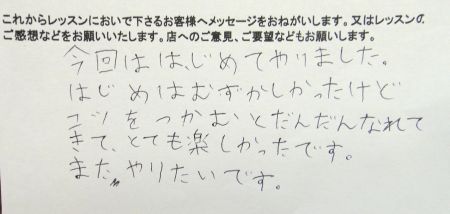 これからレッスンにおいで下さるお客様へメッセージをおねがいします。又はレッスンの
ご感想などをお願いいたします。店へのご意見、ご要望などもお願いします。
今回は はじめてやりました。
はじめはむずかしかったけど
コツをつかむとだんだんなれて
きて、とても楽しかったです。
また、やりたいです。